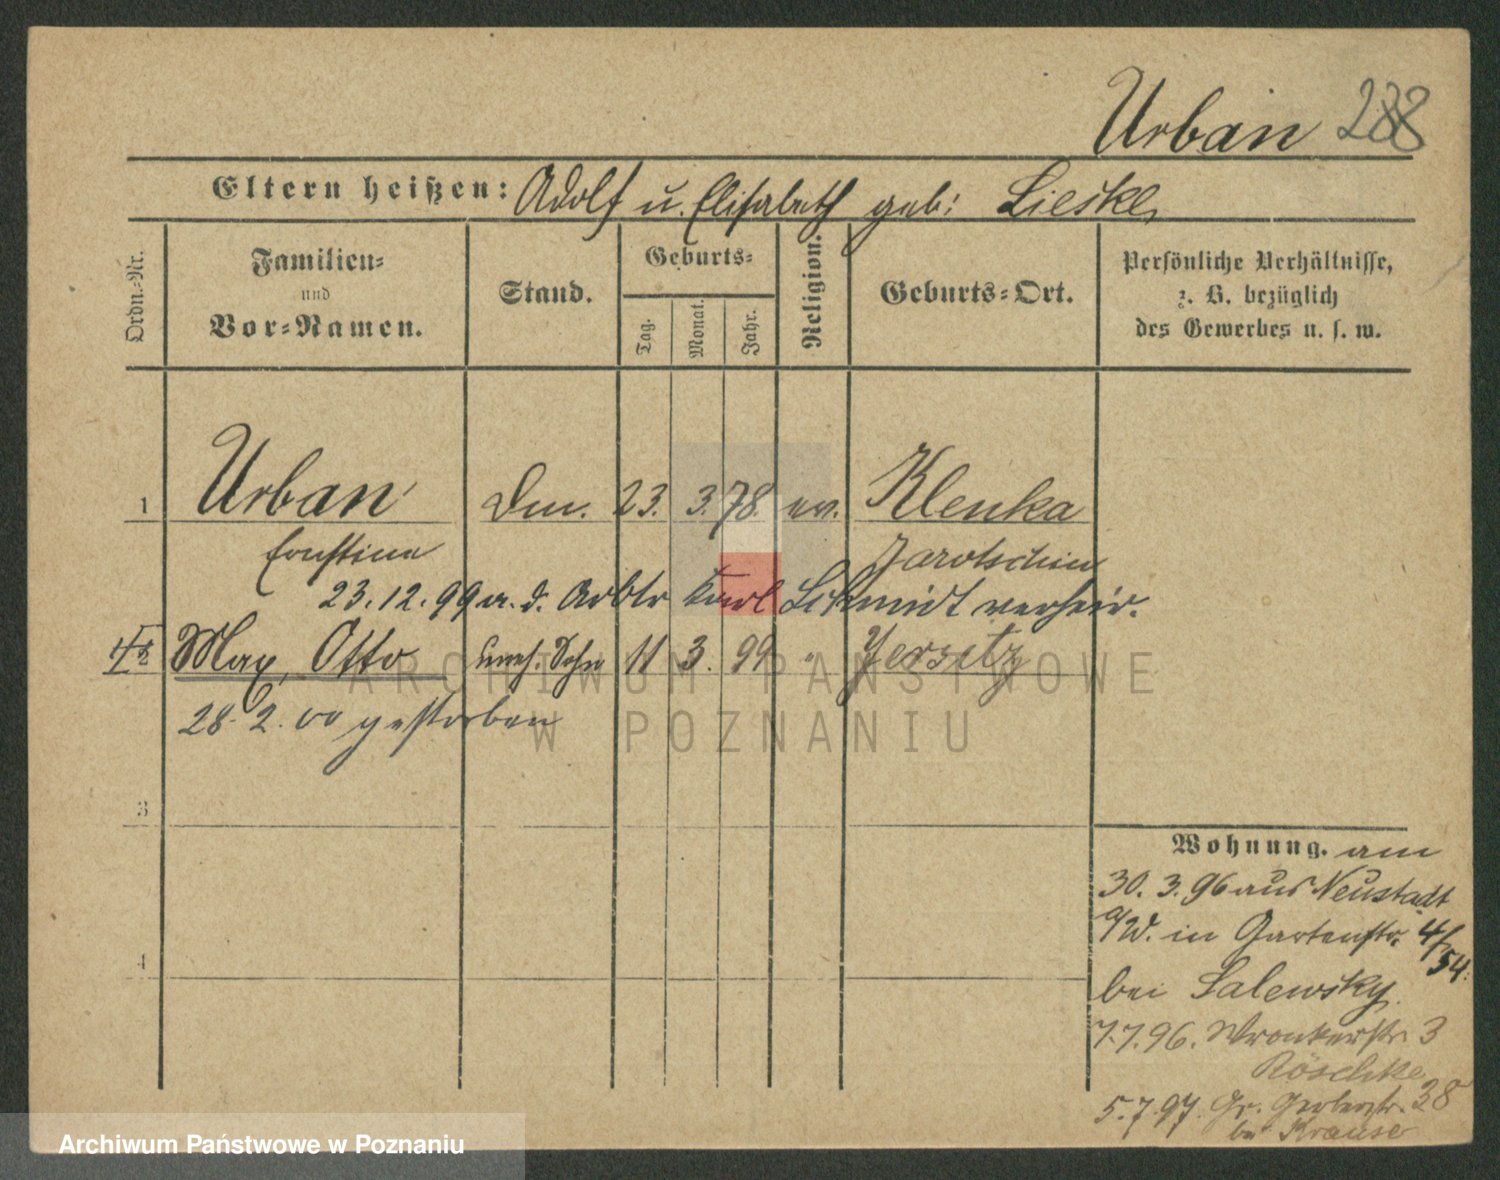 Urban 288
Eltern heißen: Adolf u. Elisabeth geb: Lieske
Ordn.-Nr.
Familien-
und
Vor-Namen.
Stand.
Geburts-
Tag.
Monat.
Jahr.
Religion.
Geburts-Ort.
Persönliche Verhältnisse,
z. B. bezüglich
des Gewerbes u. s. w.
1 Urban Dm. 23. 3. 78. ev. Klenka
Ernstine Jarotschin
23.12.99 m. d. Arbtr Karl Schmidt verheir.
Max, Otto uneh. Sohn 11 3. 99 " Jersitz
28. 2. 00 gestorben
3
4
Wohnung. am
30. 3. 96 aus Neustadt
a/W. in Gartenstr. 4/54.
bei Salewsky.
7.7.96. Wronkerstr. 3
Röschke
5.7.97. Gr. Gerberstr. 38
bei Krause
ARCHIWUM PAŃSTWOWE
W POZNANIU
Archiwum Państwowe w Poznaniu